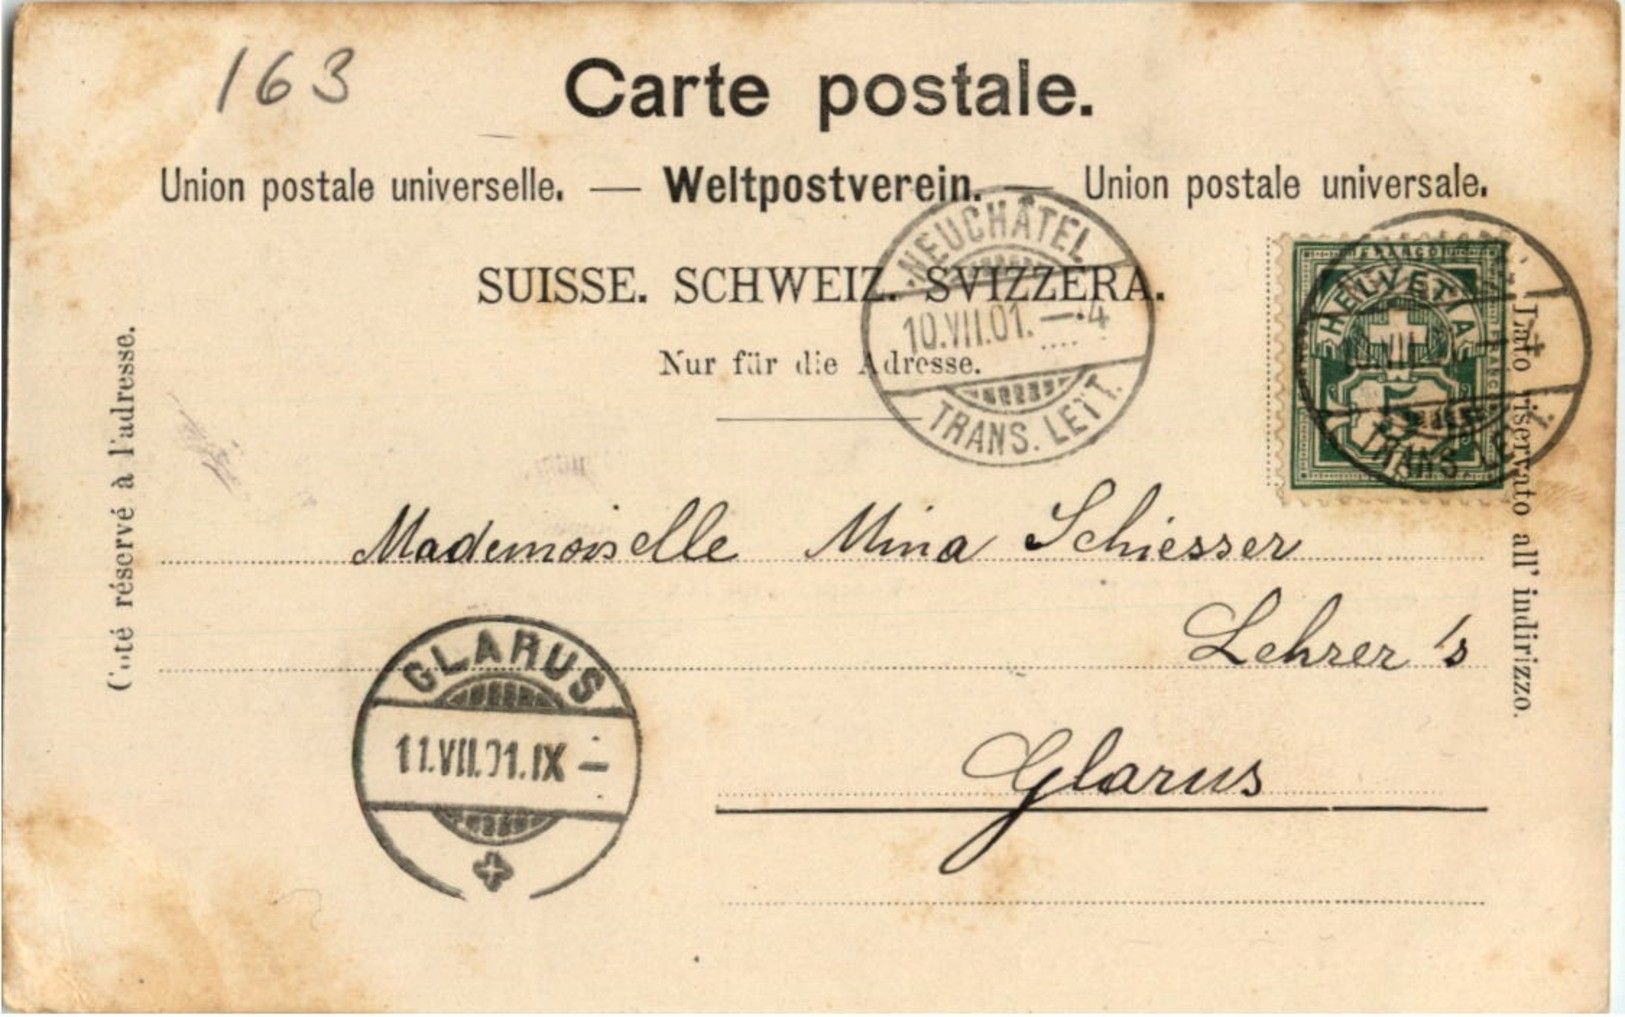 163
Carte postale.
Union postale universelle. — Weltpostverein. — Union postale universale.
SUISSE. SCHWEIZ. SVIZZERA.
Nur für die Adresse.
NEUCHÂTEL
10.VII.01. — 4
TRANS. LETT.
HELVETIA
FRANCO
5
VII
TRANS. LETT.
Côté réservé à l'adresse.
Lato riservato all' indirizzo.
Mademoiselle Mina Schiesser
Lehrer's
Glarus
GLARUS
11.VII.01.IX –